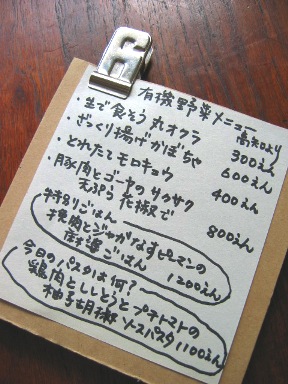 有機野菜メニュー
高知より
・生で食そう 丸オクラ 300えん
・ざっくり揚げかぼちゃ 600えん
とれたてモロキュウ 400えん
・豚肉とゴーヤのサクサク
天ぷら 花椒で 800えん
特別ごはん
挽肉とジャがなすピーマンの
ごはん 1200えん
今日のパスタは何?
鶏肉とししとうとプチトマトの
柚子胡椒 ソースパスタ 1100えん